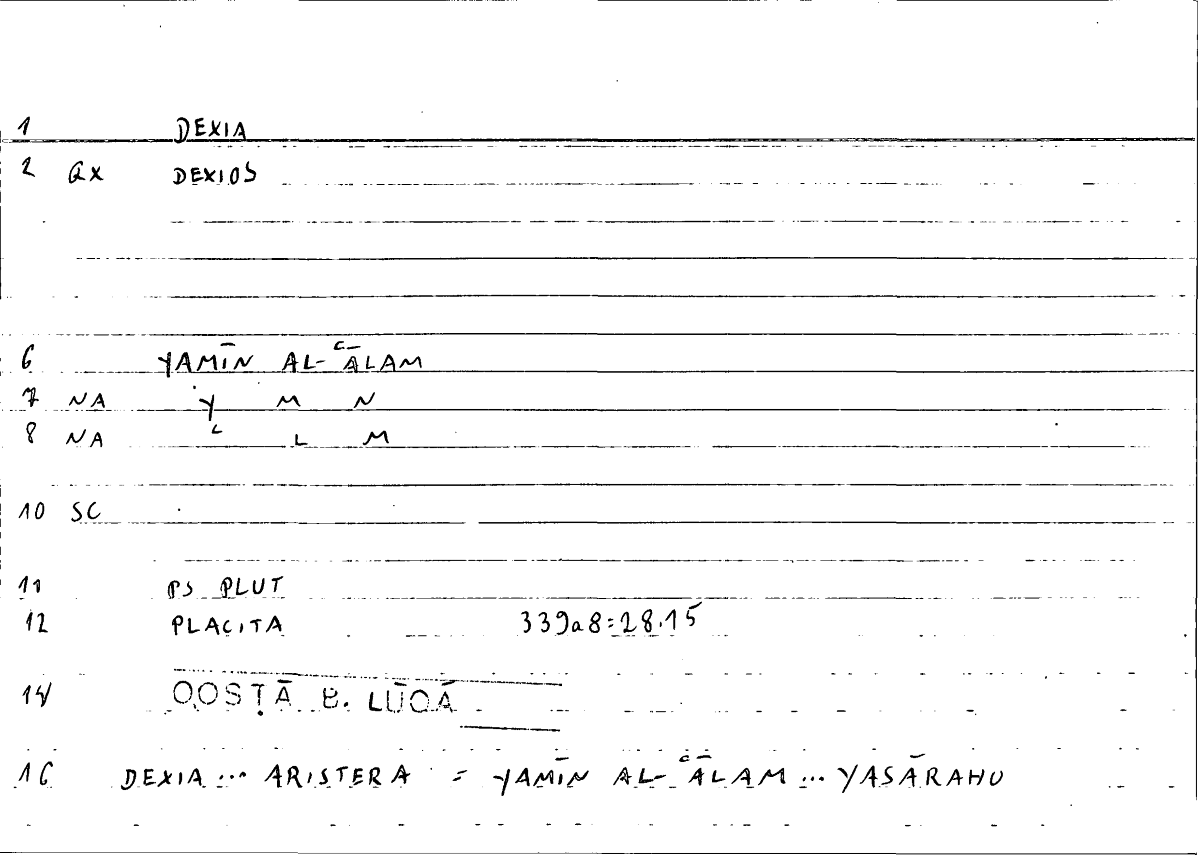 1 DEXIA
2 GX DEXIOS
6 YAMĪN AL-ʿĀLAM
7 NA Y M N
8 NA ʿ L M
10 SC
11 PS PLUT
12 PLACITA 339a8=28.15
14 QOSṬĀ B. LŪQĀ
16 DEXIA ... ARISTERA = YAMĪN AL-ʿĀLAM ... YASĀRAHU